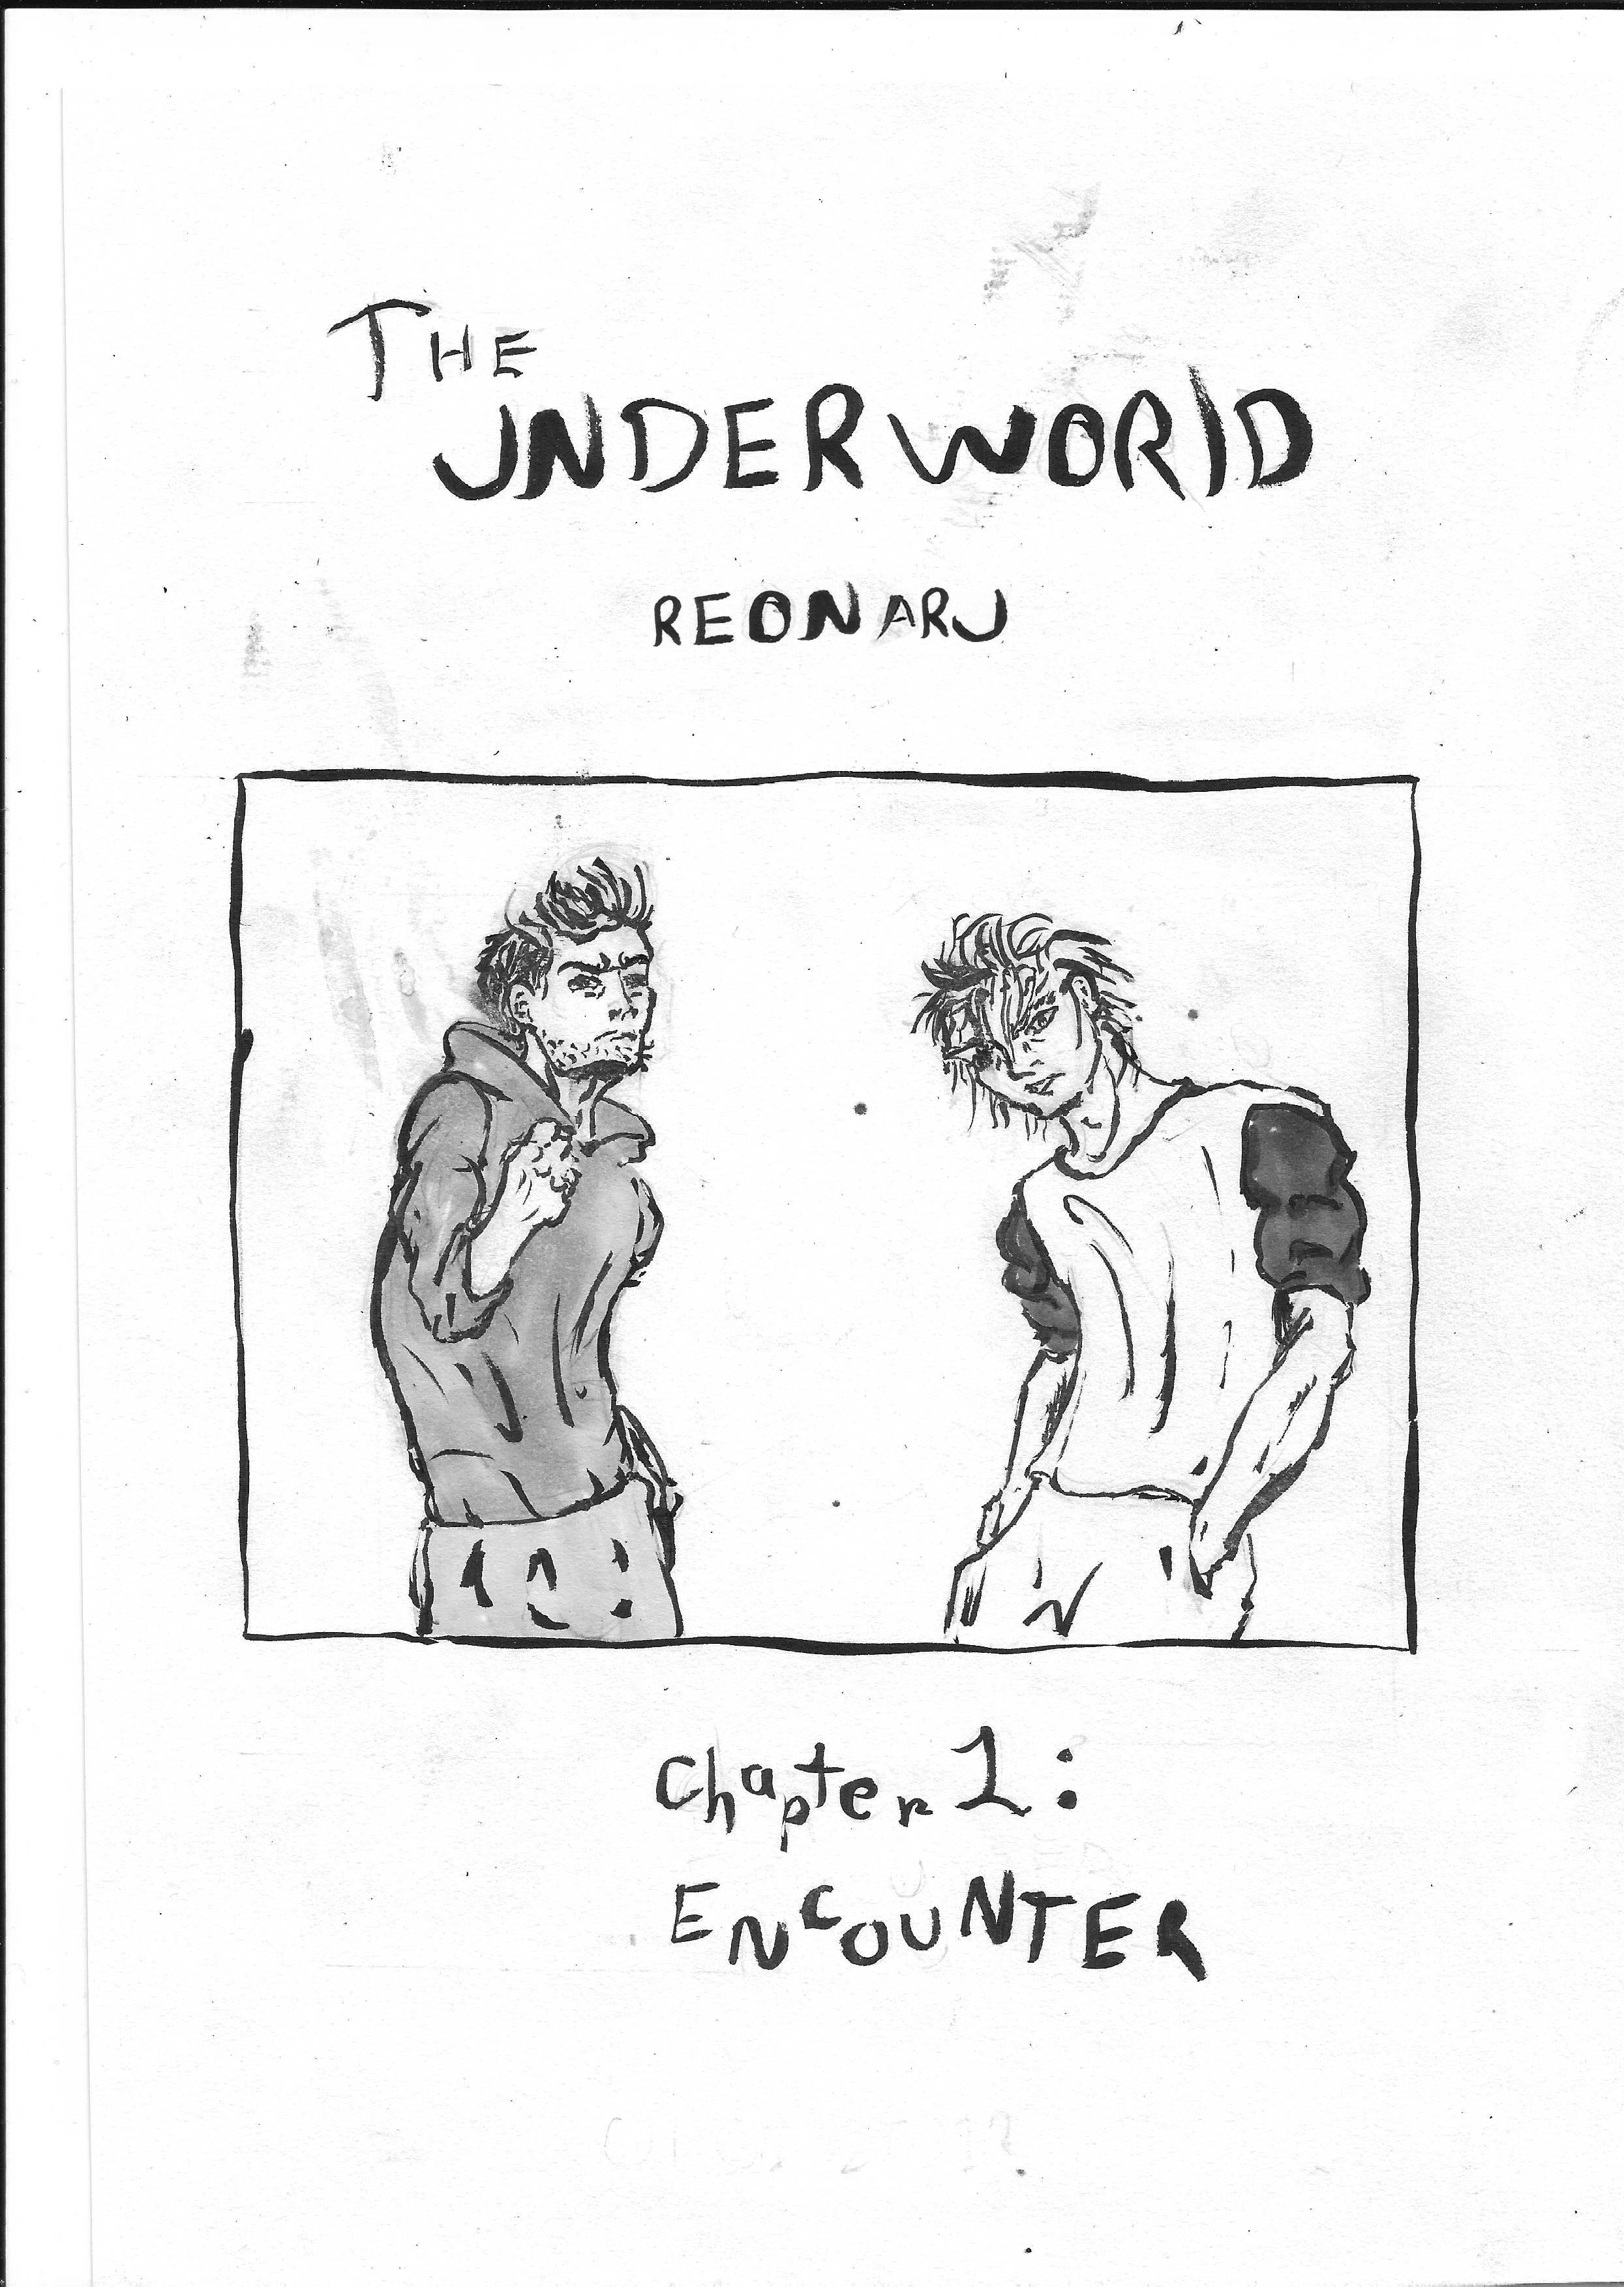 THE
UNDERWORLD
REONARU
Chapter 1:
ENCOUNTER